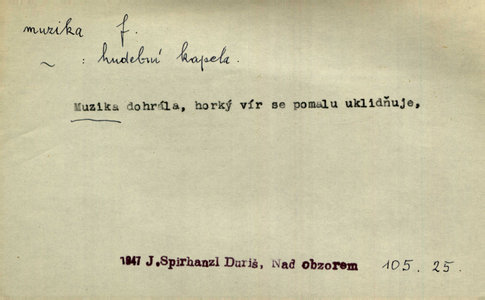 muzika f.
~ : hudební kapela.
Muzika dohrála, horký vír se pomalu uklidňuje,
1947 J.Spirhanzl Duriš, Nad obzorem 105. 25.